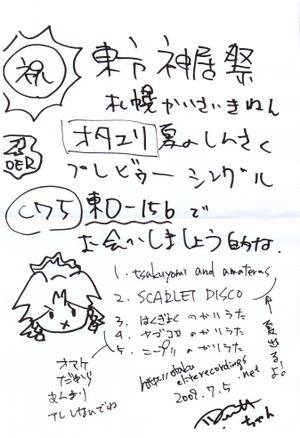 祝
東方神居祭
札幌かいさいきねん
忍
DER
オタユリ夏のしんさく
プレビゥーシングル
C75
東O-15bで
お会いしましょう的な。
1. tsukuyomi and amateras
2. SCARLET DISCO
3. はくぎょくのかりうた
4. ヤゴコロのかりうた
5. ニープリのかりうた
夏出るよ。
オマケ
だから
あんまり
アレしないでね
http://otaku-
elite recordings
.net
2009.7.5
ちゃん